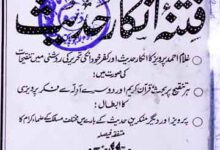 فتنۂ انکار حدیث
غلام احمد پرویز کا انکار حدیث اور کفر خود انکی تحریر کی روشنی میں تضحیک کی صورت میں :
ہر تنقیح پر بحث قرآن کریم اور دوسرے آدلہ سے فکر پرویزی کا ابطال :
پرویز اور دیگر منکرین حدیث کے بارے میں مختلف مسلک کے علماء کرام کا متفقہ فیصلہ